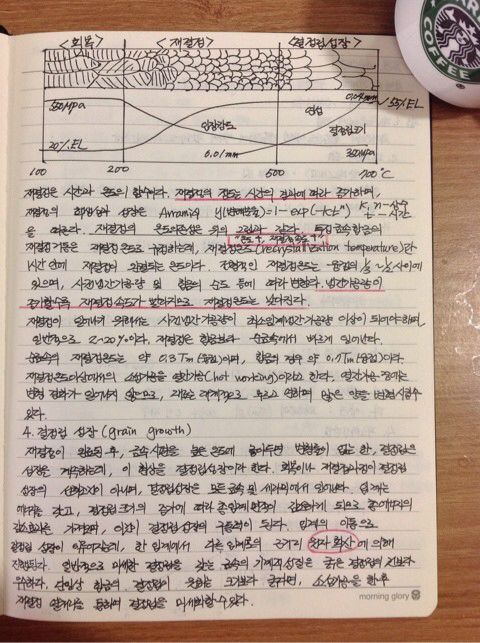 <회복> <재결정> <결정립성장>
550MPa 0.04mm 55%EL
인장강도 연성 결정립크기
20%EL 0.01mm 350MPa
100 200 500 700 °C
재결정은 시간과 온도의 함수이다. 재결정의 정도는 시간의 경과에 따라 증가하며,
재결정의 성장은 Avrami식 y(변태분율)=1-exp(-kt^n) k, n-상수 t-시간
을 따른다. 재결정의 온도의존성은 위의 그림과 같다. 특정 금속합금의
"온도↑, 재결정속도↑"
재결정거동은 재결정온도로 규정하는데, 재결정온도(recrystallization temperature)란
1시간 안에 재결정이 완료되는 온도이다. 전형적인 재결정온도는 용융점의 1/3~1/2 사이에
있으며, 사전냉간가공량 및 합금의 순도 등에 따라 변화한다. 냉간가공량이
증가할수록 재결정속도가 빨라지므로 재결정온도는 낮아진다.
재결정이 일어나기 위해서는 사전냉간가공량이 최소임계냉간가공량 이상이 되어야하며,
일반적으로 2~20%이다. 재결정은 합금보다 순금속에서 빠르게 일어난다.
순금속의 재결정온도는 약 0.3Tm(용점)이며, 합금의 경우 약 0.7Tm(용점)이다.
재결정온도이상에서의 소성가공을 열간가공(hot working)이라고 한다. 열간가공 중에는
변형 경화가 일어나지 않으므로, 재료는 무르고 연하며 많은 양을 변형시킬 수
있다.
4. 결정립 성장 (grain growth)
재결정이 완료된 후, 금속시편을 높은 온도에 놓아두면 변형률이 없는 한, 결정립은
성장을 계속하는데, 이 현상을 결정립성장이라 한다. 회복이나 재결정과정이 결정립
성장의 선행조건이 아니며, 결정립성장은 모든 금속 및 세라믹에서 일어난다. 입계는
에너지를 갖고, 결정립 크기의 증가에 따라 총입계면적이 감소하게 되므로 총에너지의
감소효과를 가져오며, 이것이 결정립 성장의 구동력이 된다. 입계의 이동으로
결정립 성장이 이루어지는데, 한 입계에서 다른 입계로의 근거리 원자 확산에 의해
진행된다. 일반적으로 미세한 결정립을 갖는 금속의 기계적성질은 굵은 결정립의 것보다
우수하다. 단일상 합금의 결정립이 원하는 크기보다 굵다면, 소성가공을 한 후
재결정 열처리를 통하여 결정립을 미세화할 수 있다.
morning glory
STARBUCKS
COFFEE